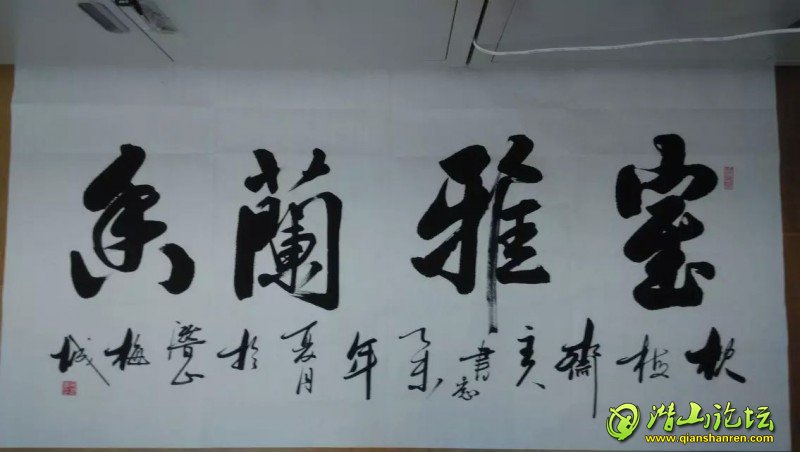 室雅蘭香
齋主書乙未年夏月於潛山梅城
潜山论坛
www.qianshanren.com